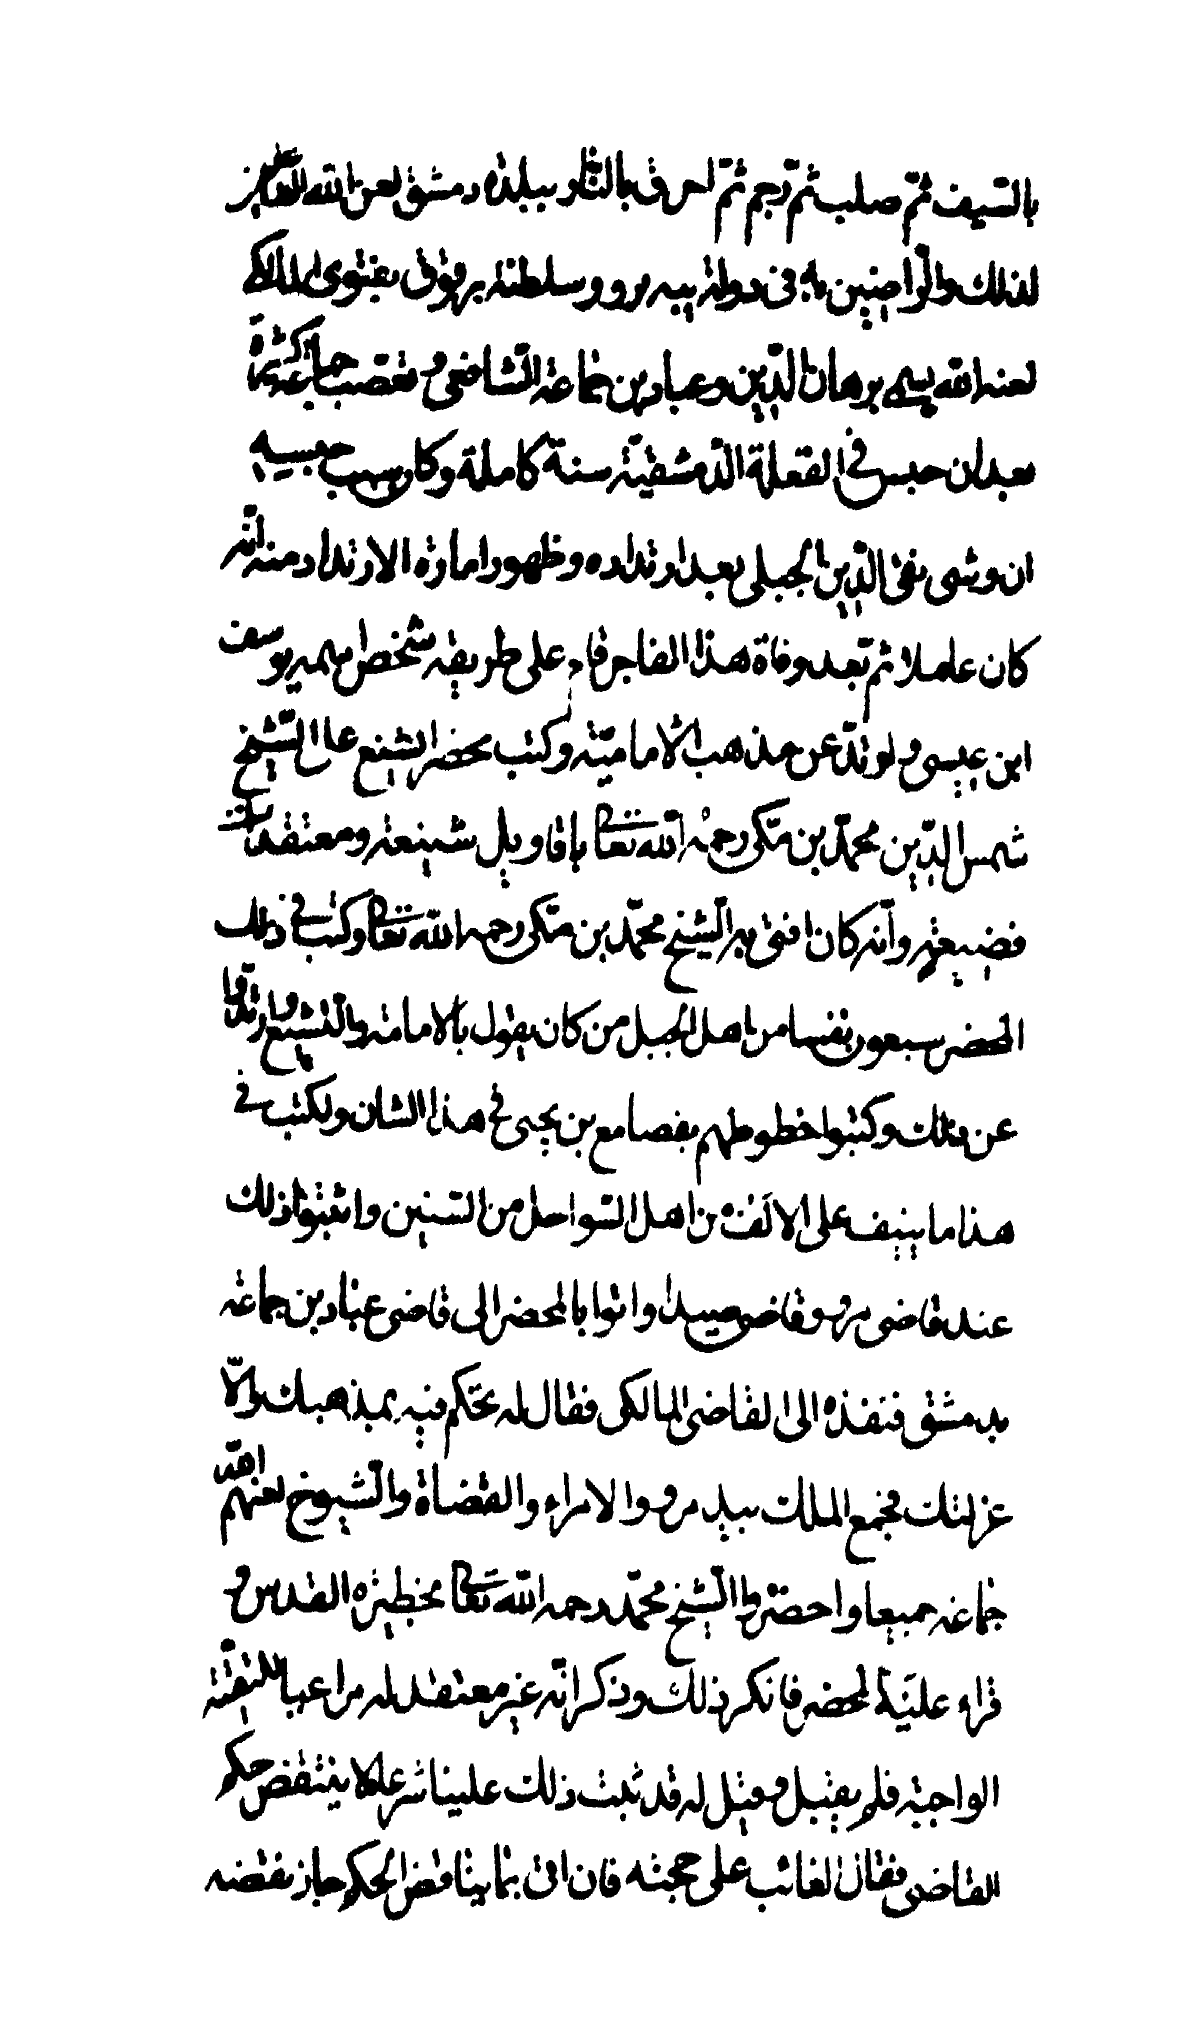 بالسّيف ثمّ صلب ثمّ رجم ثمّ احرق بالنّار ببلدة دمشق لعن الله الفاعلين
لذلك والرّاضين به في دولة بيدمرو وسلطنة برقوق بفتوى المالكي
لعنه الله يسمى برهان الدّين وعباد بن جماعة الشّافعي و تعصّب جماعة كثيرة
بعد ان حبس في القعلة الدّمشقيّة سنة كاملة وكان سبب حبسه
ان وشى تقي الدّين الجبلي بعد ارتداده وظهور امارة الارتداد منه انّه
كان عاملا ثم بعد وفاة هذا الفاجر قام على طريقه شخص اسمه يوسف
ابن عيسى و ارتدّ عن مذهب الاماميّة وكتب محضر الشنع على الشّيخ
شمس الدّين محمّد بن مكّي رحمه الله تعالى باقاويل شنيعة ومعتقدات
فضيعة وأنه كان افتى به الشّيخ محمّد بن مكّي رحمه الله تعالى وكتب في ذلك
المحضر سبعون نفسا من اهل الجبل من كان يقول بالامامة والتشيع وارتدّوا
عن ذلك وكتبوا خطوطهم بفصامع بن يحيى في هذا الشان ولكتب في
هذا ما ينيف على الالف من اهل السّواحل من السّنين واثبتوا ذلك
عند قاضي مرو وقاضي صيدا واتوا بالمحضر الى قاضي عباد بن جماعة
بدمشق فنفذه الى القاضي المالكي فقال له تحكم فيه بمذهبك والاّ
عزلتك فجمع الملك بيد مرو والامراء والقضاة والشّيوخ لعنهم الله
جماعة جميعا واحضروا الشّيخ محمّد رحمه الله تعالى بحظيرة القدس و
قراء عليه المحضر فانكر ذلك وذكر انّه غير معتقد له مراعيا للتقيّة
الواجبة فلم يقبل وقيل له قد ثبت ذلك علينا شرعا لا ينتقض حكم
القاضي فقال الغائب على حجته فان اتى بما يناقض الحكم جاز نقضه